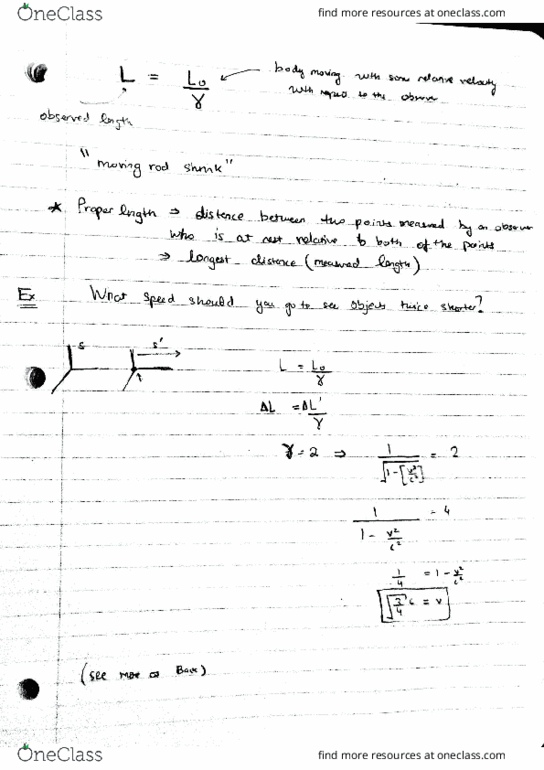 OneClass
find more resources at oneclass.com
L = L₀/γ
body moving with some relative velocity
with respect to the observer
observed length
"moving rod shrink"
* Proper length ⇒ distance between two points measured by an observer
who is at rest relative to both of the points
⇒ longest distance (measured length)
Ex What speed should you go to see objects twice shorter?
S S'
L = L₀/γ
ΔL = ΔL'/γ
γ = 2 ⇒ 1/√(1-[v²/c²]) = 2
1/(1 - v²/c²) = 4
1/4 = 1 - v²/c²
√(3/4) c = v
(see more on Back)
OneClass
find more resources at oneclass.com